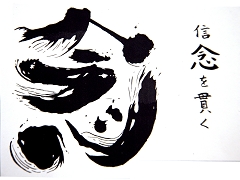 信念を貫く